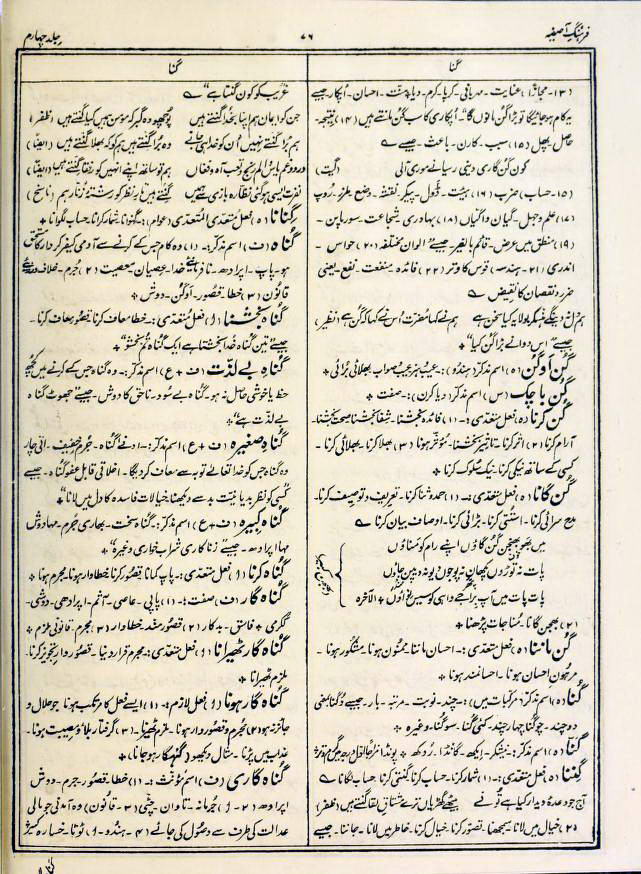 فرہنگِ آصفیہ
۷۶
جلد چہارم
گنا
گنا
(۱۳)۔ مجازاً) عنایت۔ مہربانی۔ کرپا۔ کرم۔ دیا۔ منّت۔ احسان۔ اُپکار جیسے
یہ کام ہو جائیگا تو بڑا گُن مانوں گا"۔ اُپکاری کا سب گُن مانتے ہیں (۱۴) نتیجہ۔
حاصل۔ پھل (۱۵) سبب۔ کارن۔ باعث۔ جیسے ے
کون گُن گاری دینی رسیا نے موری آلی (گیت)
(۱۵۔ حساب) ضرب (۱۶) ہیئت۔ ڈول۔ پیکر۔ نقشہ۔ وضع۔ طرز۔ رُوپ
(۱۷) علم و جہل۔ گیان و اگیان (۱۸) بہادری۔ شجاعت۔ سورماپن۔
(۱۹) منطق میں عرض۔ قائم بالغیر جیسے الوان مختلفہ (۲۰) حواس۔
اندری (۲۱۔ ہندسہ) قوس کا وتر (۲۲) فائدہ۔ منفعت۔ نفع۔ یعنی
ضرر و نقصان کا نقیض ے
ہم نے کہا مضرّت اُس نے کہا کہ گُن ہے (نظیر)
جیسے "اس دوا نے بڑا گُن کیا"
گُن اَوگُن (ہ) اسم مذکر (ہندو):۔ عیب ہنر۔ عیب صواب۔ بھلائی بُرائی +
گُن باچک (س) اسم مذکر (ویاکرن):۔ صفت +
گُن کرنا (ہ) فعل متعدی:۔ (۱) فائدہ بخشنا۔ شفا بخشنا۔ صحت بخشنا۔
آرام کرنا (۲) اثر کرنا۔ تاثیر بخشنا۔ مؤثر ہونا (۳) بھلا کرنا۔ بھلائی کرنا۔
کسی کے ساتھ نیکی کرنا۔ نیک سلوک کرنا +
گُن گانا (ہ) فعل متعدی:۔ (۱) حمد و ثنا کرنا۔ تعریف و توصیف کرنا۔
مدح سرائی کرنا۔ استُتی کرنا۔ بڑائی کرنا۔ اوصاف بیان کرنا ے
میں بھجن گُن گاؤں اپنے رام کو مناؤں
پات نہ توڑوں نہ پوجوں دیونہ دیبی جانوں
پات پات میں آپ براجے واسی کو سیس نواؤں + الآخرہ
(۲) بھجن گانا۔ مناجات پڑھنا +
گُن ماننا (ہ) فعل متعدی:۔ احسان ماننا۔ ممنون ہونا۔ مشکور ہونا۔
مرہون احسان ہونا۔ احسانمند ہونا +
گُنا (ہ) اسم مذکر (مرکّبات میں):۔ چند۔ نوبت۔ مرتبہ۔ بار۔ جیسے دُگنا یعنی
دوچند۔ چوگنا چار چند۔ کئی گُنا۔ سوگنا۔ وغیرہ +
گنّا (ہ) اسم مذکر:۔ نیشکر۔ ایکھ۔ گانڈا۔ روٗکھ +
گننا (ہ) فعل متعدی:۔ (۱) شمار کرنا۔ حساب کرنا۔ گنتی کرنا۔ حساب لگانا ے
آج جو وعدۂ دیدار کیا ہے تُو نے بیٹھے گھڑیاں ترے مشتاق لقا گنتے ہیں (ظفر)
(۲) خیال میں لانا۔ سمجھنا۔ تصوّر کرنا۔ خیال کرنا۔ خاطر میں لانا۔ جاننا۔ جیسے
غریب کو کون گنتا ہے" ے
جن کو ایمان ہم اپنا بخدا گنتے ہیں پوچھو وہ گبر کہ مومن ہمیں کیا گنتے ہیں (ظفر)
ہم بُرا گنتے نہیں اُن کو خدا ہی جانے وہ بُرا گنتے ہیں ہم کو کہ بھلا گنتے ہیں (ایضاً)
ہم تو ساتھ اپنے انہیں کو رفقا گنتے ہیں (ایضاً)
نفرت ایسی ہو گئی نظارہ بازی سے ہمیں گنتے ہیں تارِ نظر کو رشتۂ زنّار ہم (ناسخ)
گِنانا (ہ) فعل متعدی المتعدی (عوام):۔ گنوانا۔ شمار کرانا۔ حساب لگوانا +
گُناہ (ف) اسم مذکر:۔ (۱) وہ کام جس کے کرنے سے آدمی کیفر کردار کا مستحق
ہو۔ پاپ۔ اپرادھ۔ نافرمانیٔ خدا۔ عصیان۔ معصیت (۲) جُرم۔ خلاف ورزیٔ
قانون (۳) خطا۔ قصور۔ اوگن۔ دوش +
گُناہ بخشنا (ا) فعل متعدی:۔ خطا معاف کرنا۔ قصور معاف کرنا۔
جیسے تین گناہ خدا بخشتا ہے ایک گناہ تم بخشو" +
گُناہِ بے لذّت (ف + ع) اسم مذکر:۔ وہ گناہ جس کے کرنے میں کچھ
حظ یا خوشی حاصل نہ ہو۔ گناہ بے سود۔ ناحق کا دوش۔ جیسے جھوٹ گناہ
بے لذّت ہے" +
گُناہِ صغیرہ (ف + ع) اسم مذکر:۔ ادنےٰ گناہ۔ جُرم خفیف۔
وہ گناہ جس کو خدا تعالےٰ توبہ سے معاف کر دیگا۔ اخلاقی قابل عفو گناہ۔ جیسے
"کسی کو نظرِ بد یا نیت بد سے دیکھنا۔ خیالات فاسدہ کا دل میں لانا"
گُناہِ کبیرہ (ف + ع) اسم مذکر:۔ گناہ سخت۔ بھاری جُرم۔ مہادوش
مہا اپرادھ۔ جیسے زنا کاری شراب خواری وغیرہ" +
گُناہ کرنا (ا) فعل متعدی:۔ پاپ کمانا۔ قصور کرنا۔ خطاوار ہونا۔ مجرم ہونا +
گُناہ گار (ف) صفت:۔ (۱) پاپی۔ عاصی۔ آثم۔ اپرادھی۔ دوشی۔
فاسق۔ بدکار (۲) قصور مند۔ خطاوار (۳) مجرم۔ قانونی ملزم +
گُناہ گار ٹھہرانا (ا) فعل متعدی:۔ مجرم قرار دینا۔ قصور وار تجویز کرنا۔
ملزم ٹھہرانا +
گُناہ گار ہونا (ا) فعل لازم:۔ (۱) ایسے فعل کا مرتکب ہونا جو حلال و
جائز نہ ہو (۲) مجرم و قصور وار ہونا۔ ملزم ٹھہرنا۔ (۳) گرفتار بلا و مصیبت ہونا۔
عذاب میں پڑنا۔ مثال دیکھو (گنہگار ہو جانا) +
گُناہ گاری (ف) اسم مؤنث:۔ (۱) خطا۔ قصور۔ جرم۔ دوش
اپرادھ (۲۔ ا) جُرمانہ۔ تاوان۔ چٹّی (۳۔ قانون) وہ آمدنی جو مالی
عدالت کی طرف سے وصول کی جائے (۴۔ ہندو۔ ا) ٹوٹا۔ خسارہ